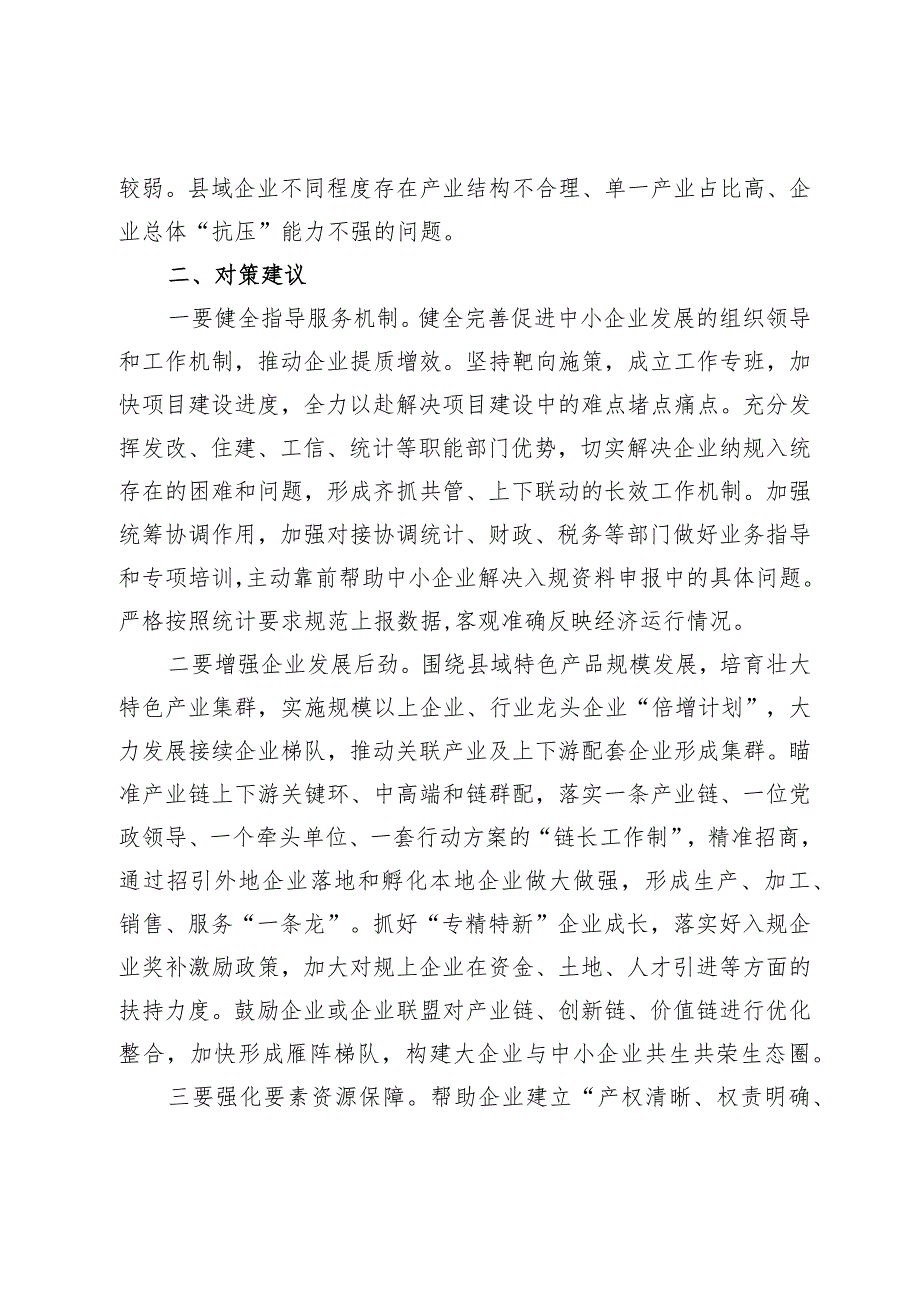 较弱。县域企业不同程度存在产业结构不合理、单一产业占比高、企
业总体“抗压”能力不强的问题。
二、对策建议
一要健全指导服务机制。健全完善促进中小企业发展的组织领导
和工作机制，推动企业提质增效。坚持靶向施策，成立工作专班，加
快项目建设进度，全力以赴解决项目建设中的难点堵点痛点。充分发
挥发改、住建、工信、统计等职能部门优势，切实解决企业纳规入统
存在的困难和问题，形成齐抓共管、上下联动的长效工作机制。加强
统筹协调作用，加强对接协调统计、财政、税务等部门做好业务指导
和专项培训,主动靠前帮助中小企业解决入规资料申报中的具体问题。
严格按照统计要求规范上报数据,客观准确反映经济运行情况。
二要增强企业发展后劲。围绕县域特色产品规模发展，培育壮大
特色产业集群，实施规模以上企业、行业龙头企业“倍增计划”，大
力发展接续企业梯队，推动关联产业及上下游配套企业形成集群。瞄
准产业链上下游关键环、中高端和链群配，落实一条产业链、一位党
政领导、一个牵头单位、一套行动方案的“链长工作制”，精准招商，
通过招引外地企业落地和孵化本地企业做大做强，形成生产、加工、
销售、服务“一条龙”。抓好“专精特新”企业成长，落实好入规企
业奖补激励政策，加大对规上企业在资金、土地、人才引进等方面的
扶持力度。鼓励企业或企业联盟对产业链、创新链、价值链进行优化
整合，加快形成雁阵梯队，构建大企业与中小企业共生共荣生态圈。
三要强化要素资源保障。帮助企业建立“产权清晰、权责明确、